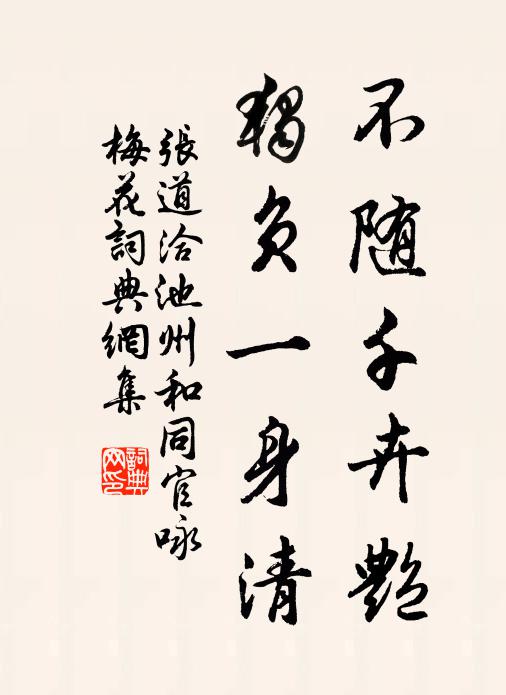 不随千卉艷
獨負一身清
張道洽池州和同官咏
梅花詞典網集
詞典网印